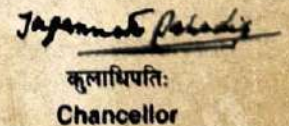 Jagannath Pahadia
कुलाधिपतिः
Chancellor